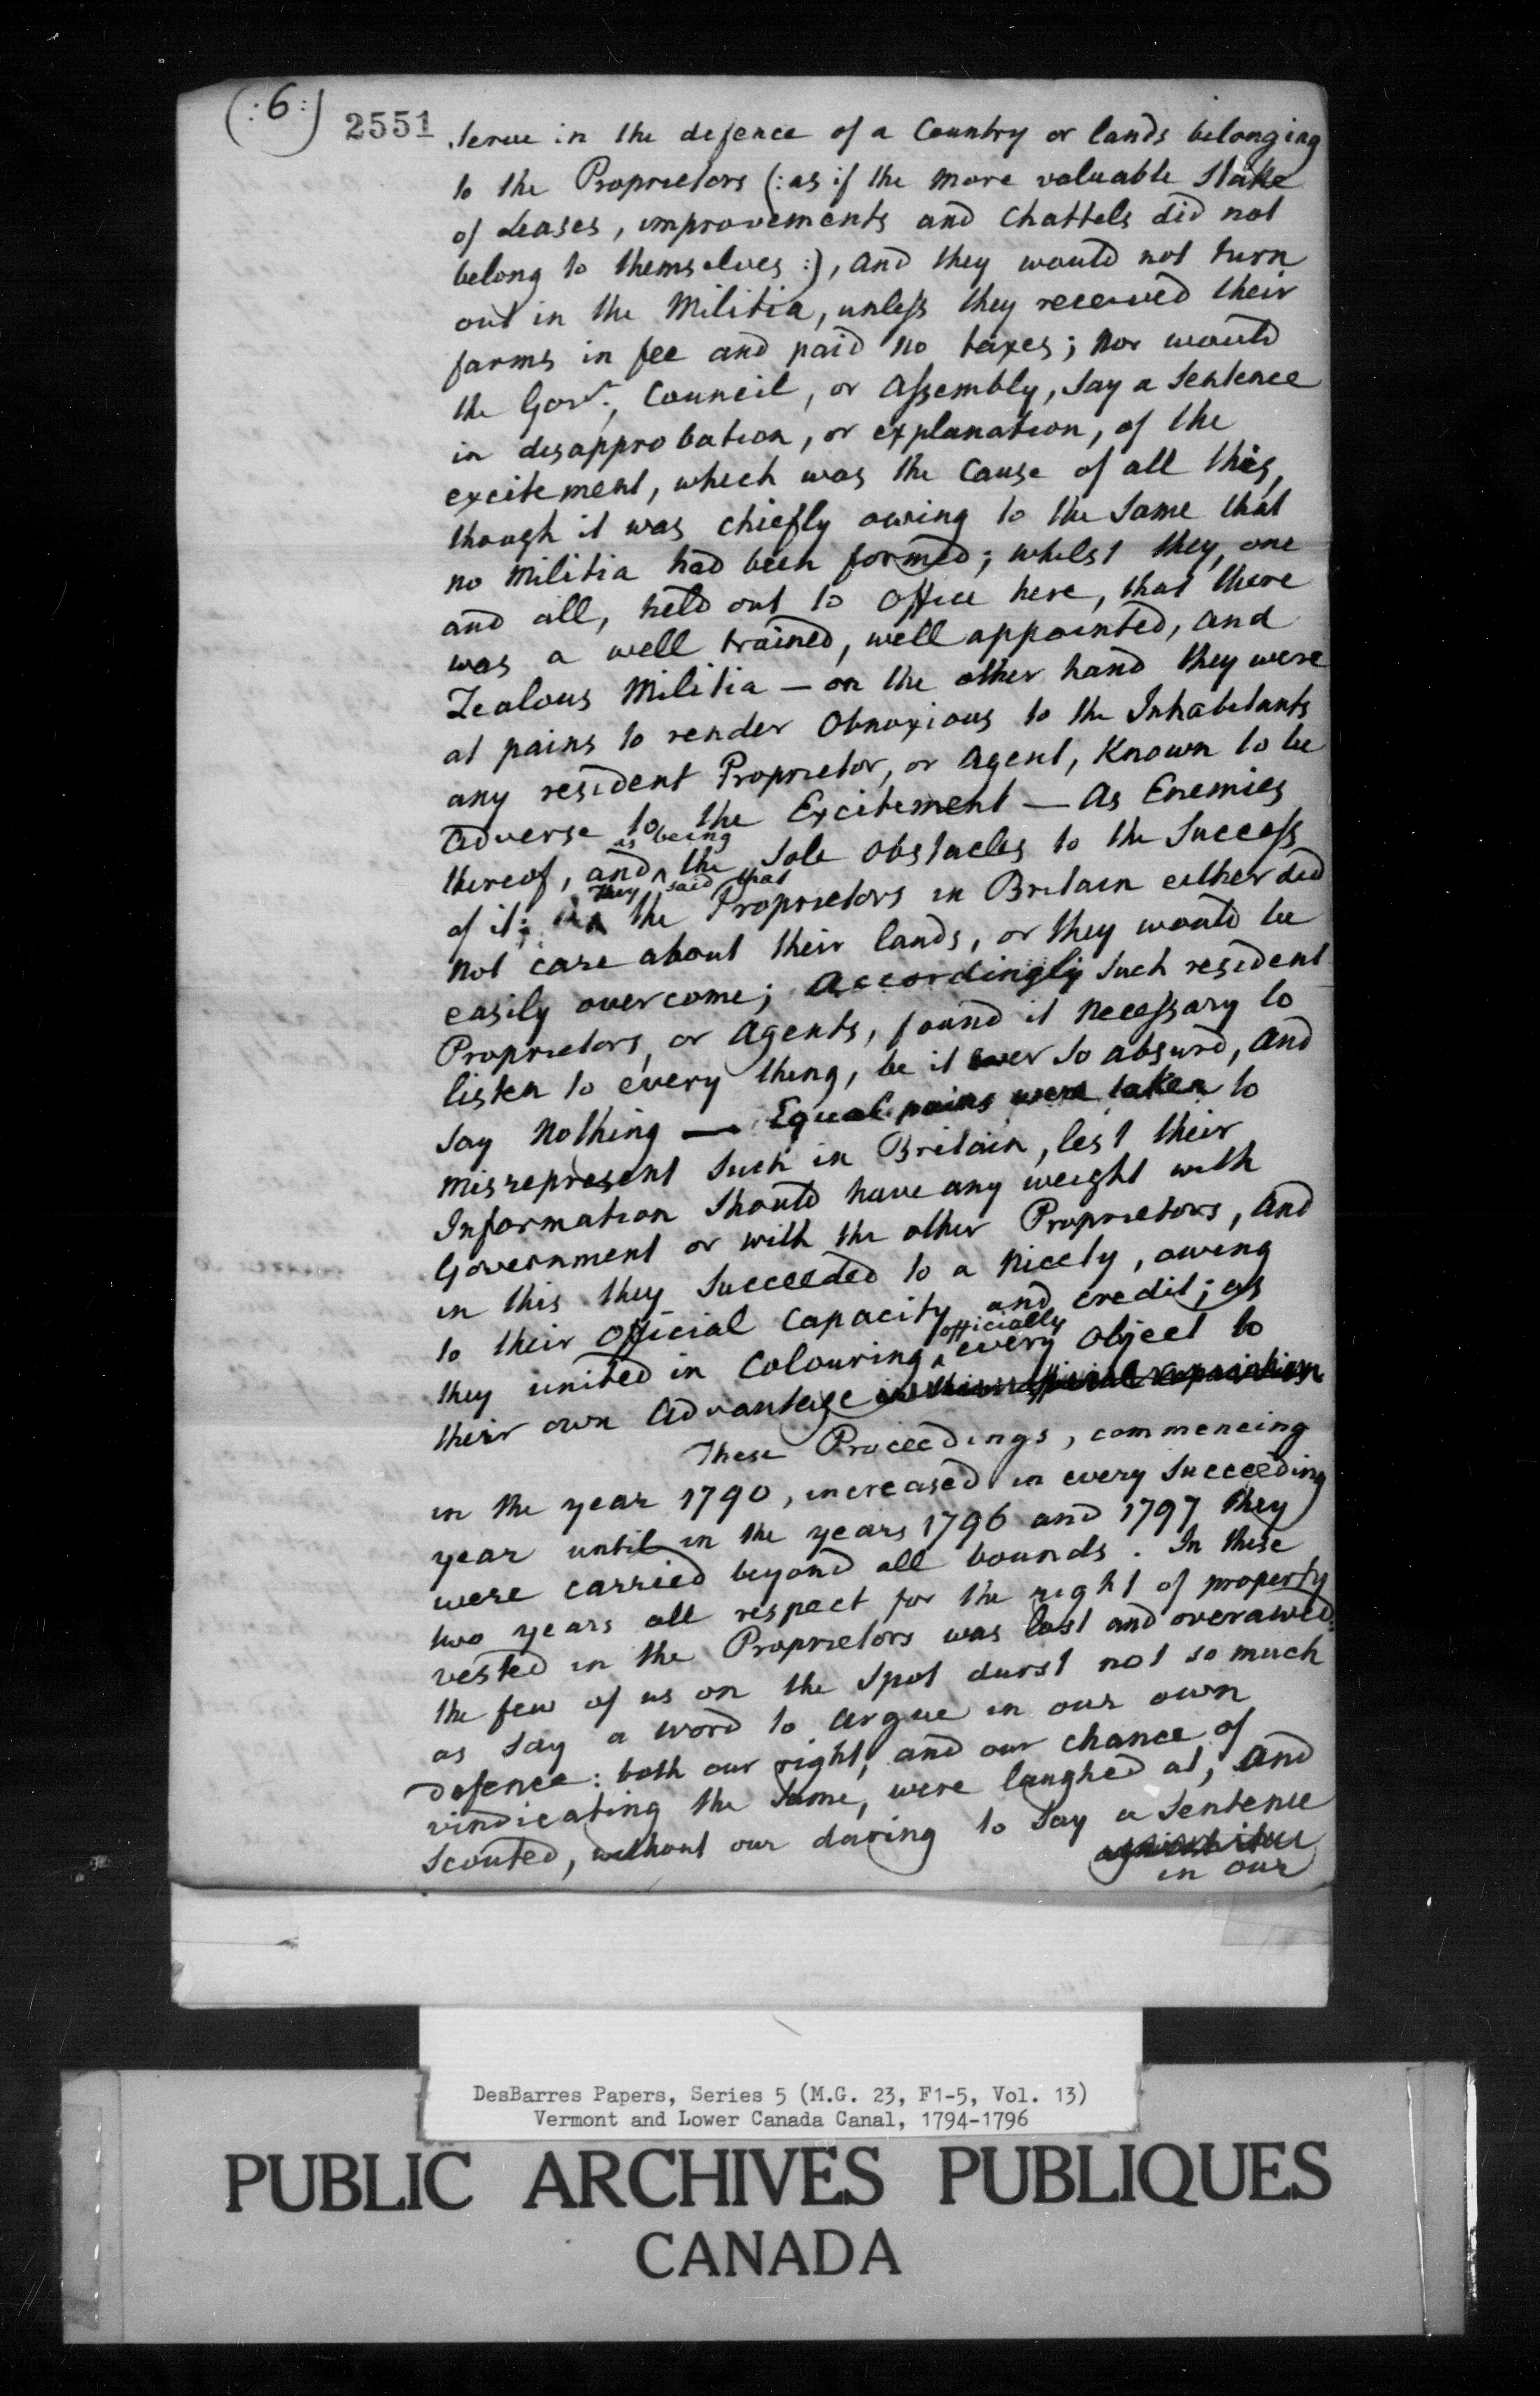 (:6:)
2551
serve in the defence of a Country or lands belonging
to the Proprietors (:as if the more valuable Stake
of Leases, improvements and Chattels did not
belong to themselves:), and they would not turn
out in the Militia, unless they received their
farms in fee and paid no taxes; nor would
the Govr., Council, or Assembly, say a Sentence
in disapprobation, or explanation, of the
excitement, which was the Cause of all this,
though it was chiefly owing to the Same that
no Militia had been formed; whilst they, one
and all, held out to Office here, that there
was a well trained, well appointed, and
Zealous Militia — on the other hand they were
at pains to render Obnoxious to the Inhabitants
any resident Proprietor, or Agent, Known to be
adverse to the Excitement — As Enemies
as being
thereof, and ^ the Sole Obstacles to the Success
they said that
of it; the Proprietors in Britain either did
not care about their lands, or they would be
easily overcome; Accordingly such resident
Proprietors, or Agents, found it necessary to
listen to every thing, be it ever so absurd, and
say nothing — Equal pains were taken to
misrepresent Such in Britain, lest their
Information Should have any weight with
Government or with the other Proprietors, and
in this they Succeeded to a nicety, owing
to their Official Capacity and credit; as
officially
they united in Colouring ^ every Object to
their own Advantage
These Proceedings, commencing
in the year 1790, increased in every Succeeding
year until in the years 1796 and 1797 they
were carried beyond all bounds. In these
two years all respect for the right of property
vested in the Proprietors was lost and overawed:
the few of us on the Spot durst not so much
as say a word to argue in our own
defence: both our right, and our chance of
vindicating the Same, were laughed at, and
Scouted, without our daring to Say a Sentence
in our
DesBarres Papers, Series 5 (M.G. 23, F1-5, Vol. 13)
Vermont and Lower Canada Canal, 1794-1796
PUBLIC ARCHIVES PUBLIQUES
CANADA